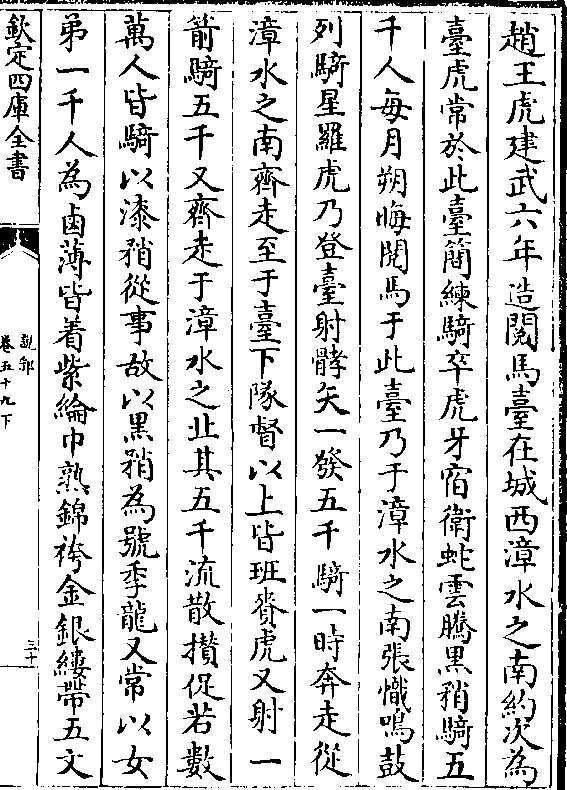 趙王虎建武六年造閲馬臺在城西漳水之南約次為
臺虎常於此臺簡練騎卒虎牙宿衛蛇雲騰黒矟騎五
千人每月朔晦閲馬于此臺乃于漳水之南張幟鳴鼓
列騎星羅虎乃登臺射髇矢一發五千騎一時奔走從
漳水之南齊走至于臺下隊督以上皆班賚虎又射一
箭騎五千又齊走于漳水之北其五千流散攢促若數
萬人皆騎以漆矟從事故以黒矟為號季龍又常以女
弟一千人為鹵薄皆着紫綸巾熟錦袴金銀縷帶五文
欽定四庫全書
說郛
卷五十九下
三十